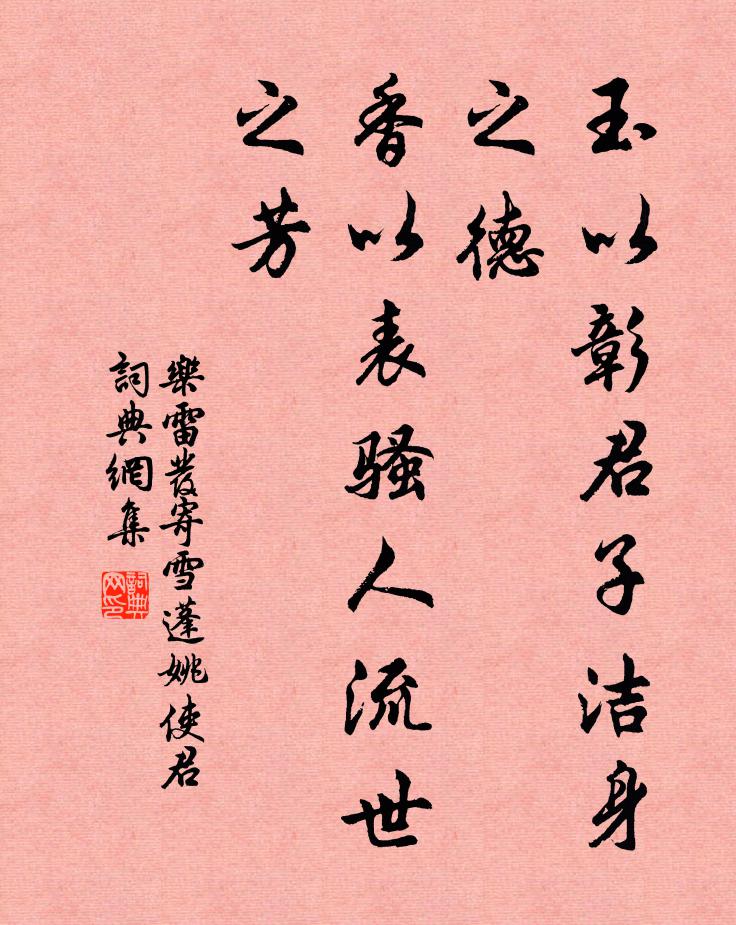 玉以彰君子洁身
之德
香以表骚人流世
之芳
樂雷發寄雪蓬姚使君
詞典網集
詞典网印